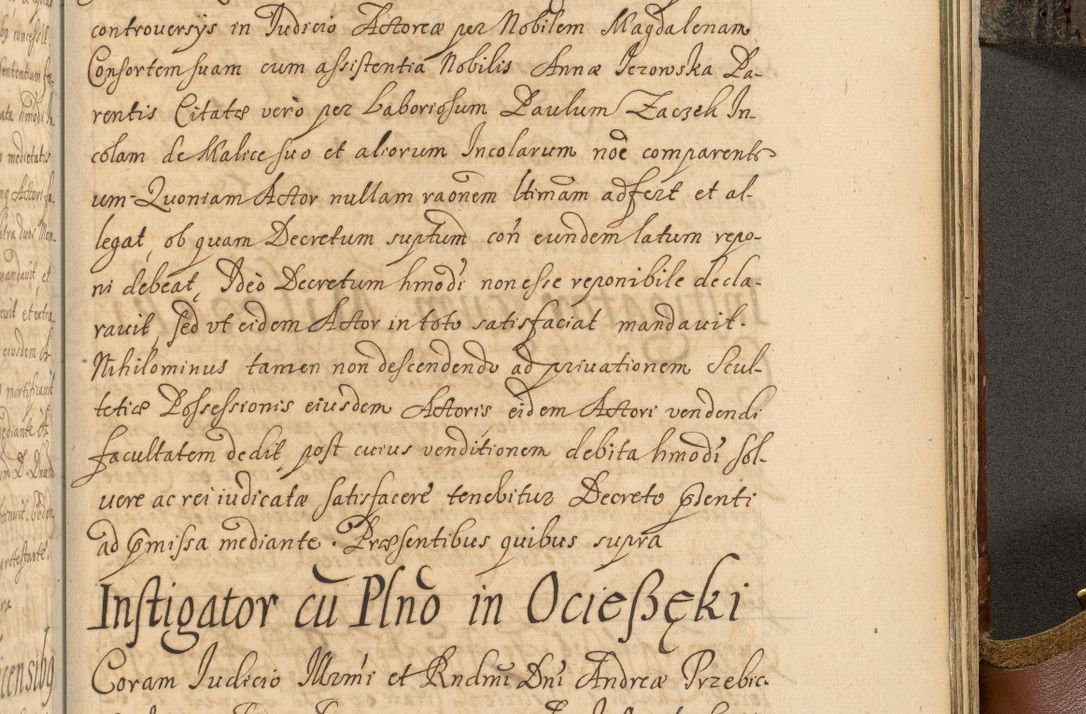 controversys in Judicio Actoreæ per Nobilem Magdalenam
Consortem suam cum assistentia Nobilis Annæ Jezowska Pa-
rentis Citatæ verò per Laboriosum Paulum Zaczek In-
colam de Malice suo et aliorum Incolarum noē comparent-
um Quoniam Actor nullam raōnem ltimām adfert et al-
legat, ob quam Decretum suptum con̄ eundem latum repo-
ni debeat, Ideò Decretum hmodi non esse reponibile decla-
ravit, sed vt eidem Actor in toto satisfaciat mandavit.
Nihilominus tamen non descendendo ad privationem Scul-
tetiæ Possessionis eiusdem Actoris eidem Actori vendendi
facultatem dedit, post cuius venditionem debita hmodi sol-
vere ac rei iudicatæ satisfacere tenebitur Decreto p̄senti
ad p̄missa mediante. Præsentibus quibus supra
Instigator cū Plnō in Ocießęki
Coram Judicio Illrmi et Rndmi Dni Andreæ Trzebic-